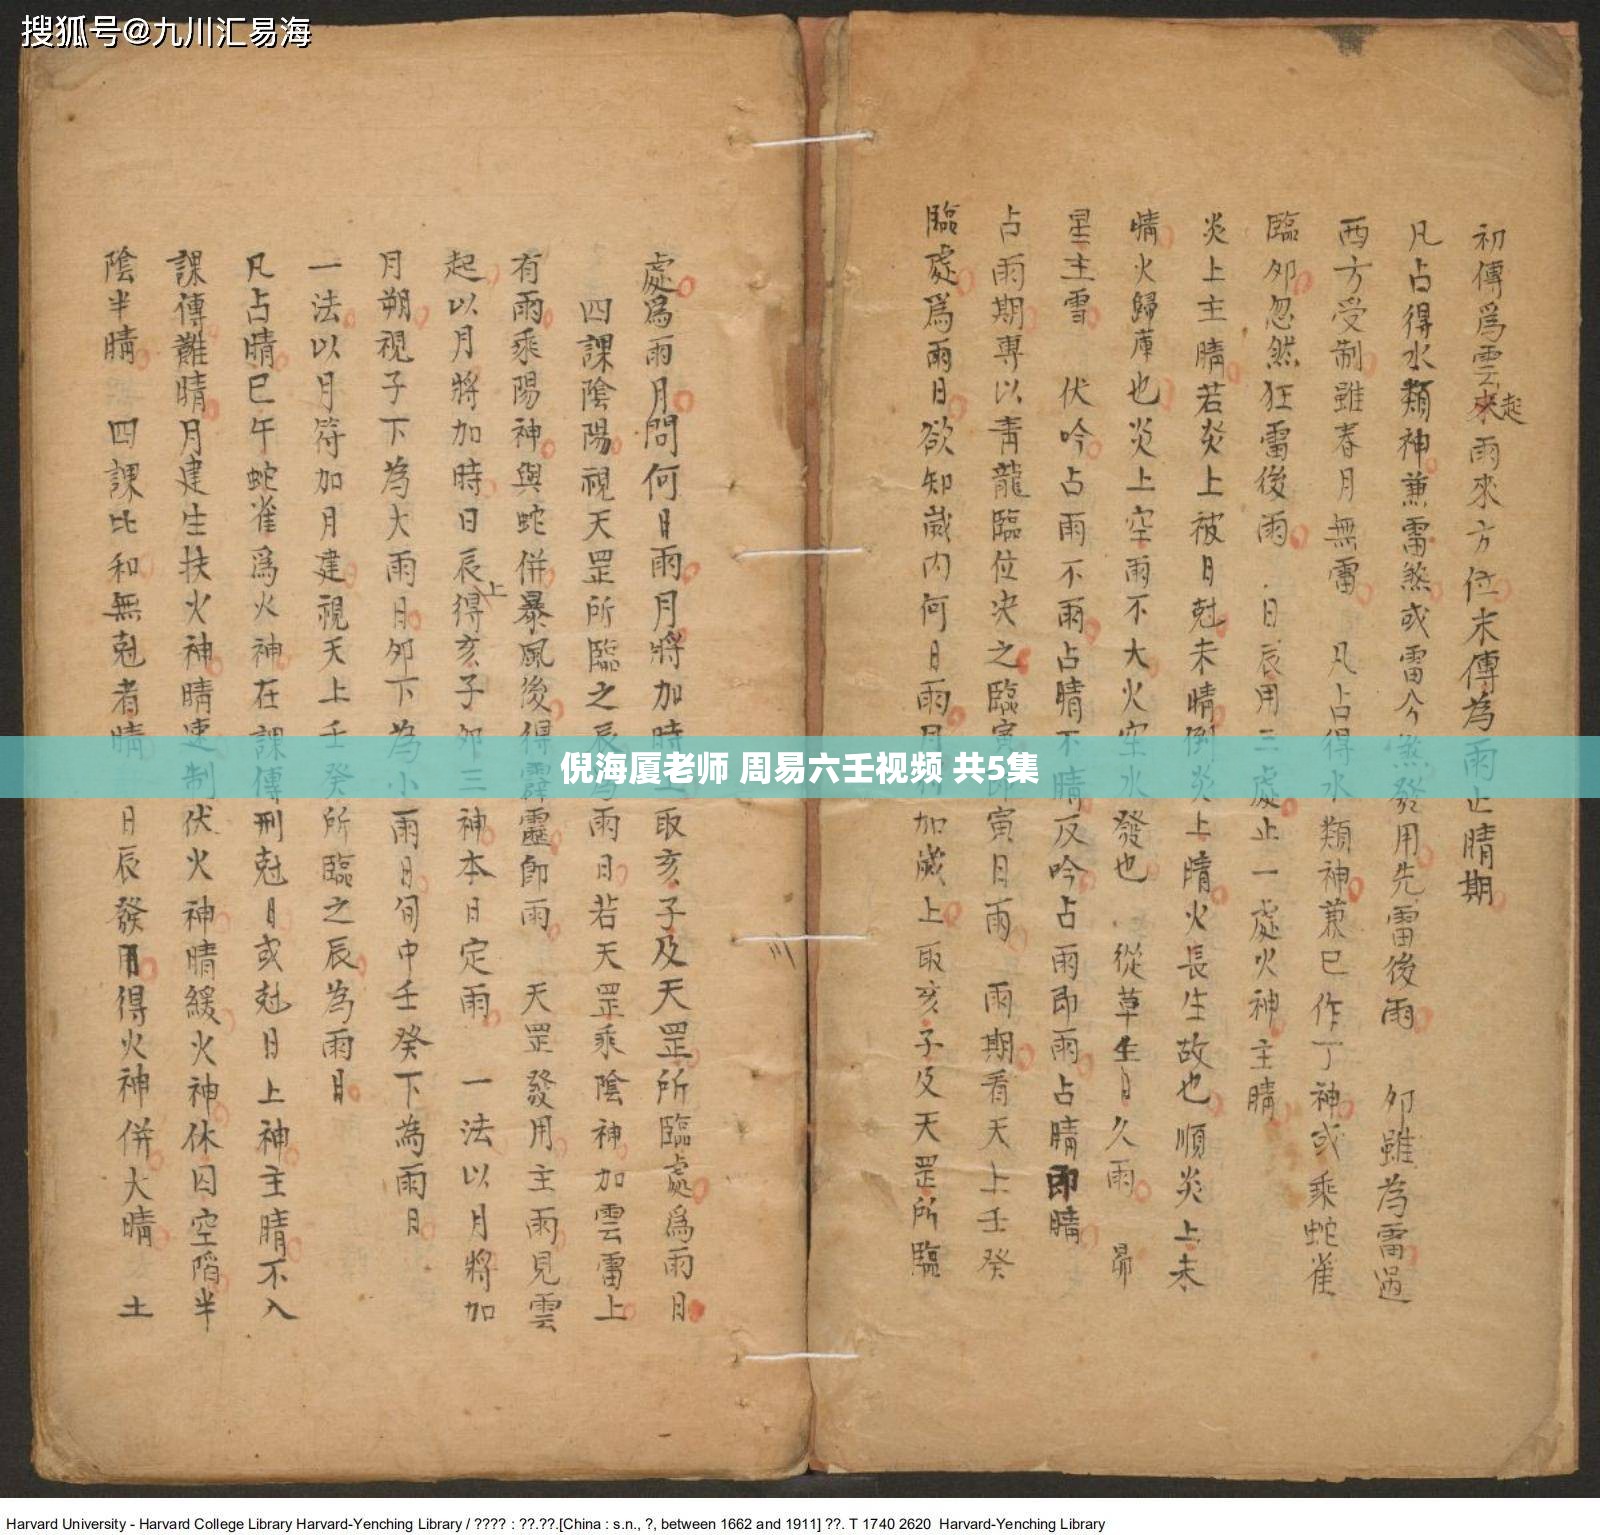 搜狐号@九川汇易海
初傳爲雲起來雨來方位末傳為雨止晴期
凡占得水類神兼雷煞或雷今煞發用先雷後雨 夘雖為雷過
西方受制雖春月無雷 凡占得水類神兼巳作丁神或乘蛇雀
臨夘忽然狂雷後雨 日辰用三處止一處火神主晴
炎上主晴若炎上被日尅未晴倒炎上晴火長生故也順炎上未
晴火歸庫也炎上空雨不大火空水發也 從草生月久雨 昴
星主雪 伏吟占雨不雨占晴不晴反吟占雨即雨占晴即晴
占雨期專以青龍臨位决之臨寅 寅日雨 雨期看天上壬癸
臨處爲雨日欲知歲内何日雨月 加歲上取亥子及天罡所臨
處爲雨月問何日雨月將加時 取亥子及天罡所臨處爲雨日
四課陰陽視天罡所臨之辰為雨日若天罡乘陰神加雲雷上
有雨乘陽神與蛇併暴風後得霹靂即雨 天罡發用主雨見雲
起以月將加時日辰上得亥子夘三神本日定雨 一法以月將加
月朔視子下为大雨日夘下為小雨日旬中壬癸下為雨日
一法以月符加月建視天上壬癸所臨之辰為雨日
凡占晴巳午蛇雀爲火神在課傳刑尅日或尅日上神主晴不入
課傳難晴月建生扶火神晴速制伏火神晴緩火神休囚空陷半
陰半晴 四課比和無尅者晴 日辰發用得火神併大晴 土
倪海厦老师 周易六壬视频 共5集
Harvard University - Harvard College Library Harvard-Yenching Library / ???? : ??.??.[China : s.n., ?, between 1662 and 1911] ??. T 1740 2620 Harvard-Yenching Library